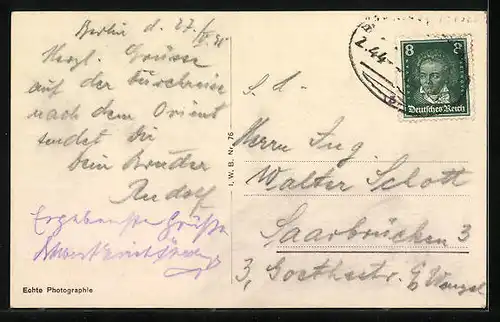 Berlin d. 27/
Herzl. Grüsse
auf der Durchreise
nach dem Orient
sendet Dir
Dein Bruder
Rudolf
Ergebenste Grüße
Echte Photographie
I. W. B. Nr. 76
8 8
Deutsches Reich
Herrn Ing.
Walter Schott
Saarbrücken 3
3, Goethestr. 6